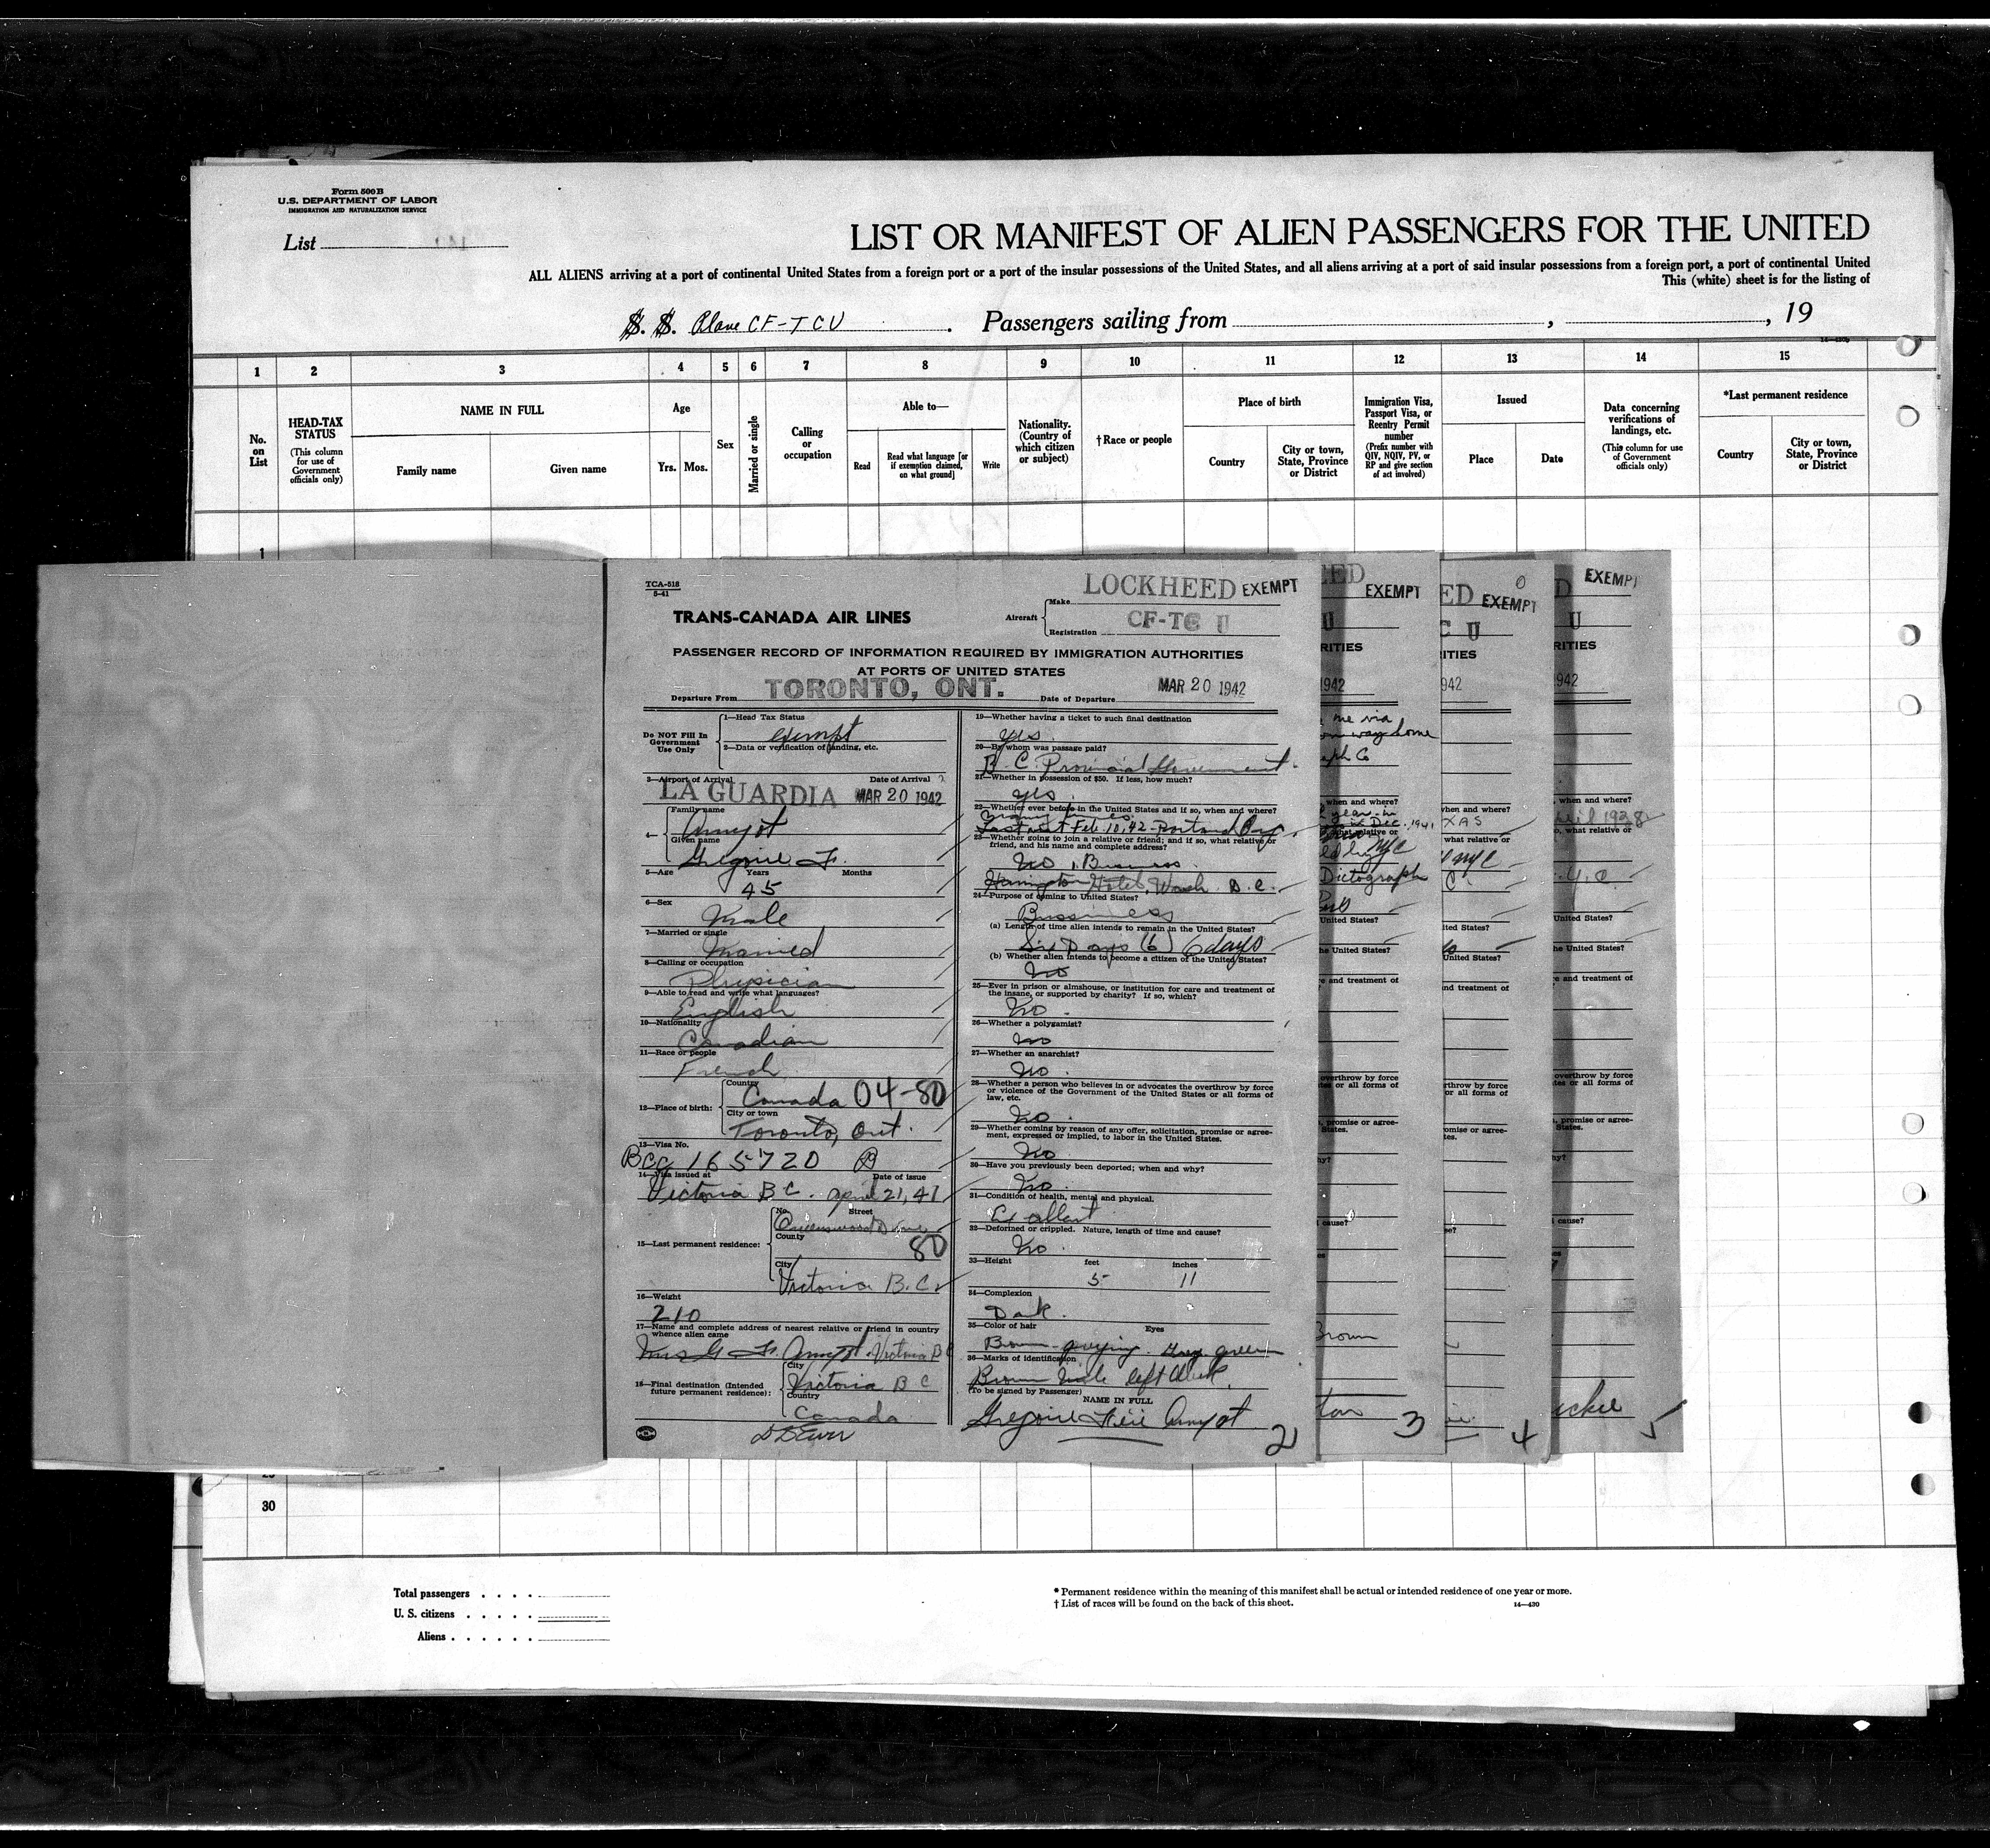 Form 500B
U.S. DEPARTMENT OF LABOR
IMMIGRATION AND NATURALIZATION SERVICE
List
LIST OR MANIFEST OF ALIEN PASSENGERS FOR THE UNITED
ALL ALIENS arriving at a port of continental United States from a foreign port or a port of the insular possessions of the United States, and all aliens arriving at a port of said insular possessions from a foreign port, a port of continental United
This (white) sheet is for the listing of
S. S. Plane CF-TCU. Passengers sailing from , , 19
1 2 3 4 5 6 7 8 9 10 11 12 13 14 15
No. on List
HEAD-TAX STATUS (This column for use of Government officials only)
NAME IN FULL
Family name Given name
Age
Yrs. Mos.
Sex
Married or single
Calling or occupation
Able to—
Read
Read what language [or if exemption claimed, on what ground]
Write
Nationality. (Country of which citizen or subject)
†Race or people
Place of birth
Country
City or town, State, Province or District
Immigration Visa, Passport Visa, or Reentry Permit number (Prefix number with QIV, NQIV, PV, or RP and give section of act involved)
Issued
Place Date
Data concerning verifications of landings, etc. (This column for use of Government officials only)
*Last permanent residence
Country
City or town, State, Province or District
1
TCA-518
5-41
LOCKHEED EXEMPT
TRANS-CANADA AIR LINES
Aircraft
Make
Registration CF-TC U
PASSENGER RECORD OF INFORMATION REQUIRED BY IMMIGRATION AUTHORITIES
AT PORTS OF UNITED STATES
Departure From TORONTO, ONT. Date of Departure MAR 20 1942
Do NOT Fill In Government Use Only
1—Head Tax Status
exempt
2—Data or verification of landing, etc.
3—Airport of Arrival Date of Arrival
LA GUARDIA MAR 20 1942
4—
Family name
Amyot
Given name
Gregoire F.
5—Age Years Months
45
6—Sex
Male
7—Married or single
Married
8—Calling or occupation
Physician
9—Able to read and write what languages?
English
10—Nationality
Canadian
11—Race or people
French
12—Place of birth:
Country
Canada 04-80
City or town
Toronto, Ont.
13—Visa No.
BCC 165720
14—Visa issued at Date of issue
Victoria B C. April 21, 41
15—Last permanent residence:
No. Street
Queenswood Drive
County
80
City
Victoria B.C.
16—Weight
210
17—Name and complete address of nearest relative or friend in country whence alien came
Mrs G F. Amyot. Victoria B C
18—Final destination (Intended future permanent residence):
City
Victoria B C
Country
Canada
19—Whether having a ticket to such final destination
yes
20—By whom was passage paid?
B. C. Provincial Government.
21—Whether in possession of $50. If less, how much?
yes
22—Whether ever before in the United States and if so, when and where?
many times
Last visit Feb. 10, 42 - Portland Ore.
23—Whether going to join a relative or friend; and if so, what relative or friend, and his name and complete address?
No, Business
Harrington Hotel, Wash. D. C.
24—Purpose of coming to United States?
Bussiness
(a) Length of time alien intends to remain in the United States?
Six Days (6) 6 days
(b) Whether alien intends to become a citizen of the United States?
No
25—Ever in prison or almshouse, or institution for care and treatment of the insane, or supported by charity? If so, which?
No
26—Whether a polygamist?
No
27—Whether an anarchist?
No
28—Whether a person who believes in or advocates the overthrow by force or violence of the Government of the United States or all forms of law, etc.
No
29—Whether coming by reason of any offer, solicitation, promise or agreement, expressed or implied, to labor in the United States.
No
30—Have you previously been deported; when and why?
No
31—Condition of health, mental and physical.
32—Deformed or crippled. Nature, length of time and cause?
No
33—Height feet inches
5 11
34—Complexion
Dark.
35—Color of hair Eyes
Brown-greying. Grey green
36—Marks of identification
Brown Mole left Cheek.
(To be signed by Passenger)
NAME IN FULL
Amyot
2
EXEMPT
U
1942
me via
way home
Dec. 1941
NYC
Dictograph
Brown
3
EXEMPT
C U
942
XAS
NYC
4
EXEMPT
U
942
1928
5
30
Total passengers
U. S. citizens
Aliens
* Permanent residence within the meaning of this manifest shall be actual or intended residence of one year or more.
† List of races will be found on the back of this sheet.
14—430